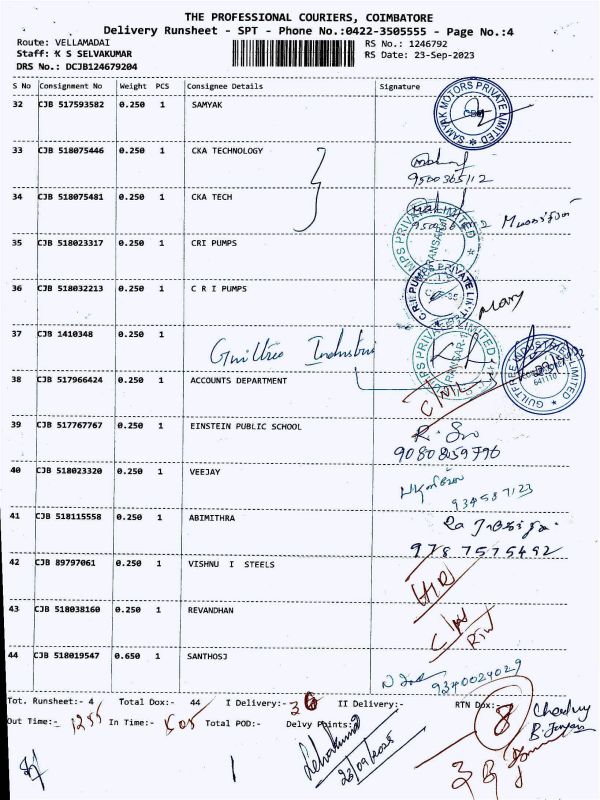 THE PROFESSIONAL COURIERS, COIMBATORE
Delivery Runsheet - SPT - Phone No.:0422-3505555 - Page No.:4
Route: VELLAMADAI
RS No.: 1246792
Staff: K S SELVAKUMAR
RS Date: 23-Sep-2023
DRS No.: DCJB124679204
S No Consignment No Weight PCS Consignee Details Signature
32 CJB 517593582 0.250 1 SAMYAK
SAMYAK MOTORS PRIVATE LIMITED
33 CJB 518075446 0.250 1 CKA TECHNOLOGY
9500365112
34 CJB 518075481 0.250 1 CKA TECH
35 CJB 518023317 0.250 1 CRI PUMPS
36 CJB 518032213 0.250 1 C R I PUMPS
C.R.I. PUMPS PRIVATE LIMITED
Mary
37 CJB 1410348 0.250 1
Guiltfree Industries
GUILTFREE INDUSTRIES LIMITED
641110
38 CJB 517966424 0.250 1 ACCOUNTS DEPARTMENT
39 CJB 517767767 0.250 1 EINSTEIN PUBLIC SCHOOL
9080859796
40 CJB 518023320 0.250 1 VEEJAY
934587123
41 CJB 518115558 0.250 1 ABIMITHRA
9787575492
42 CJB 89797061 0.250 1 VISHNU I STEELS
43 CJB 518038160 0.250 1 REVANDHAN
44 CJB 518019547 0.650 1 SANTHOSJ
9340024029
Tot. Runsheet:- 4 Total Dox:- 44 I Delivery:- 36 II Delivery:- RTN Dox:- 8
Out Time:- 1255 In Time:- 1505 Total POD:- Delvy Points: